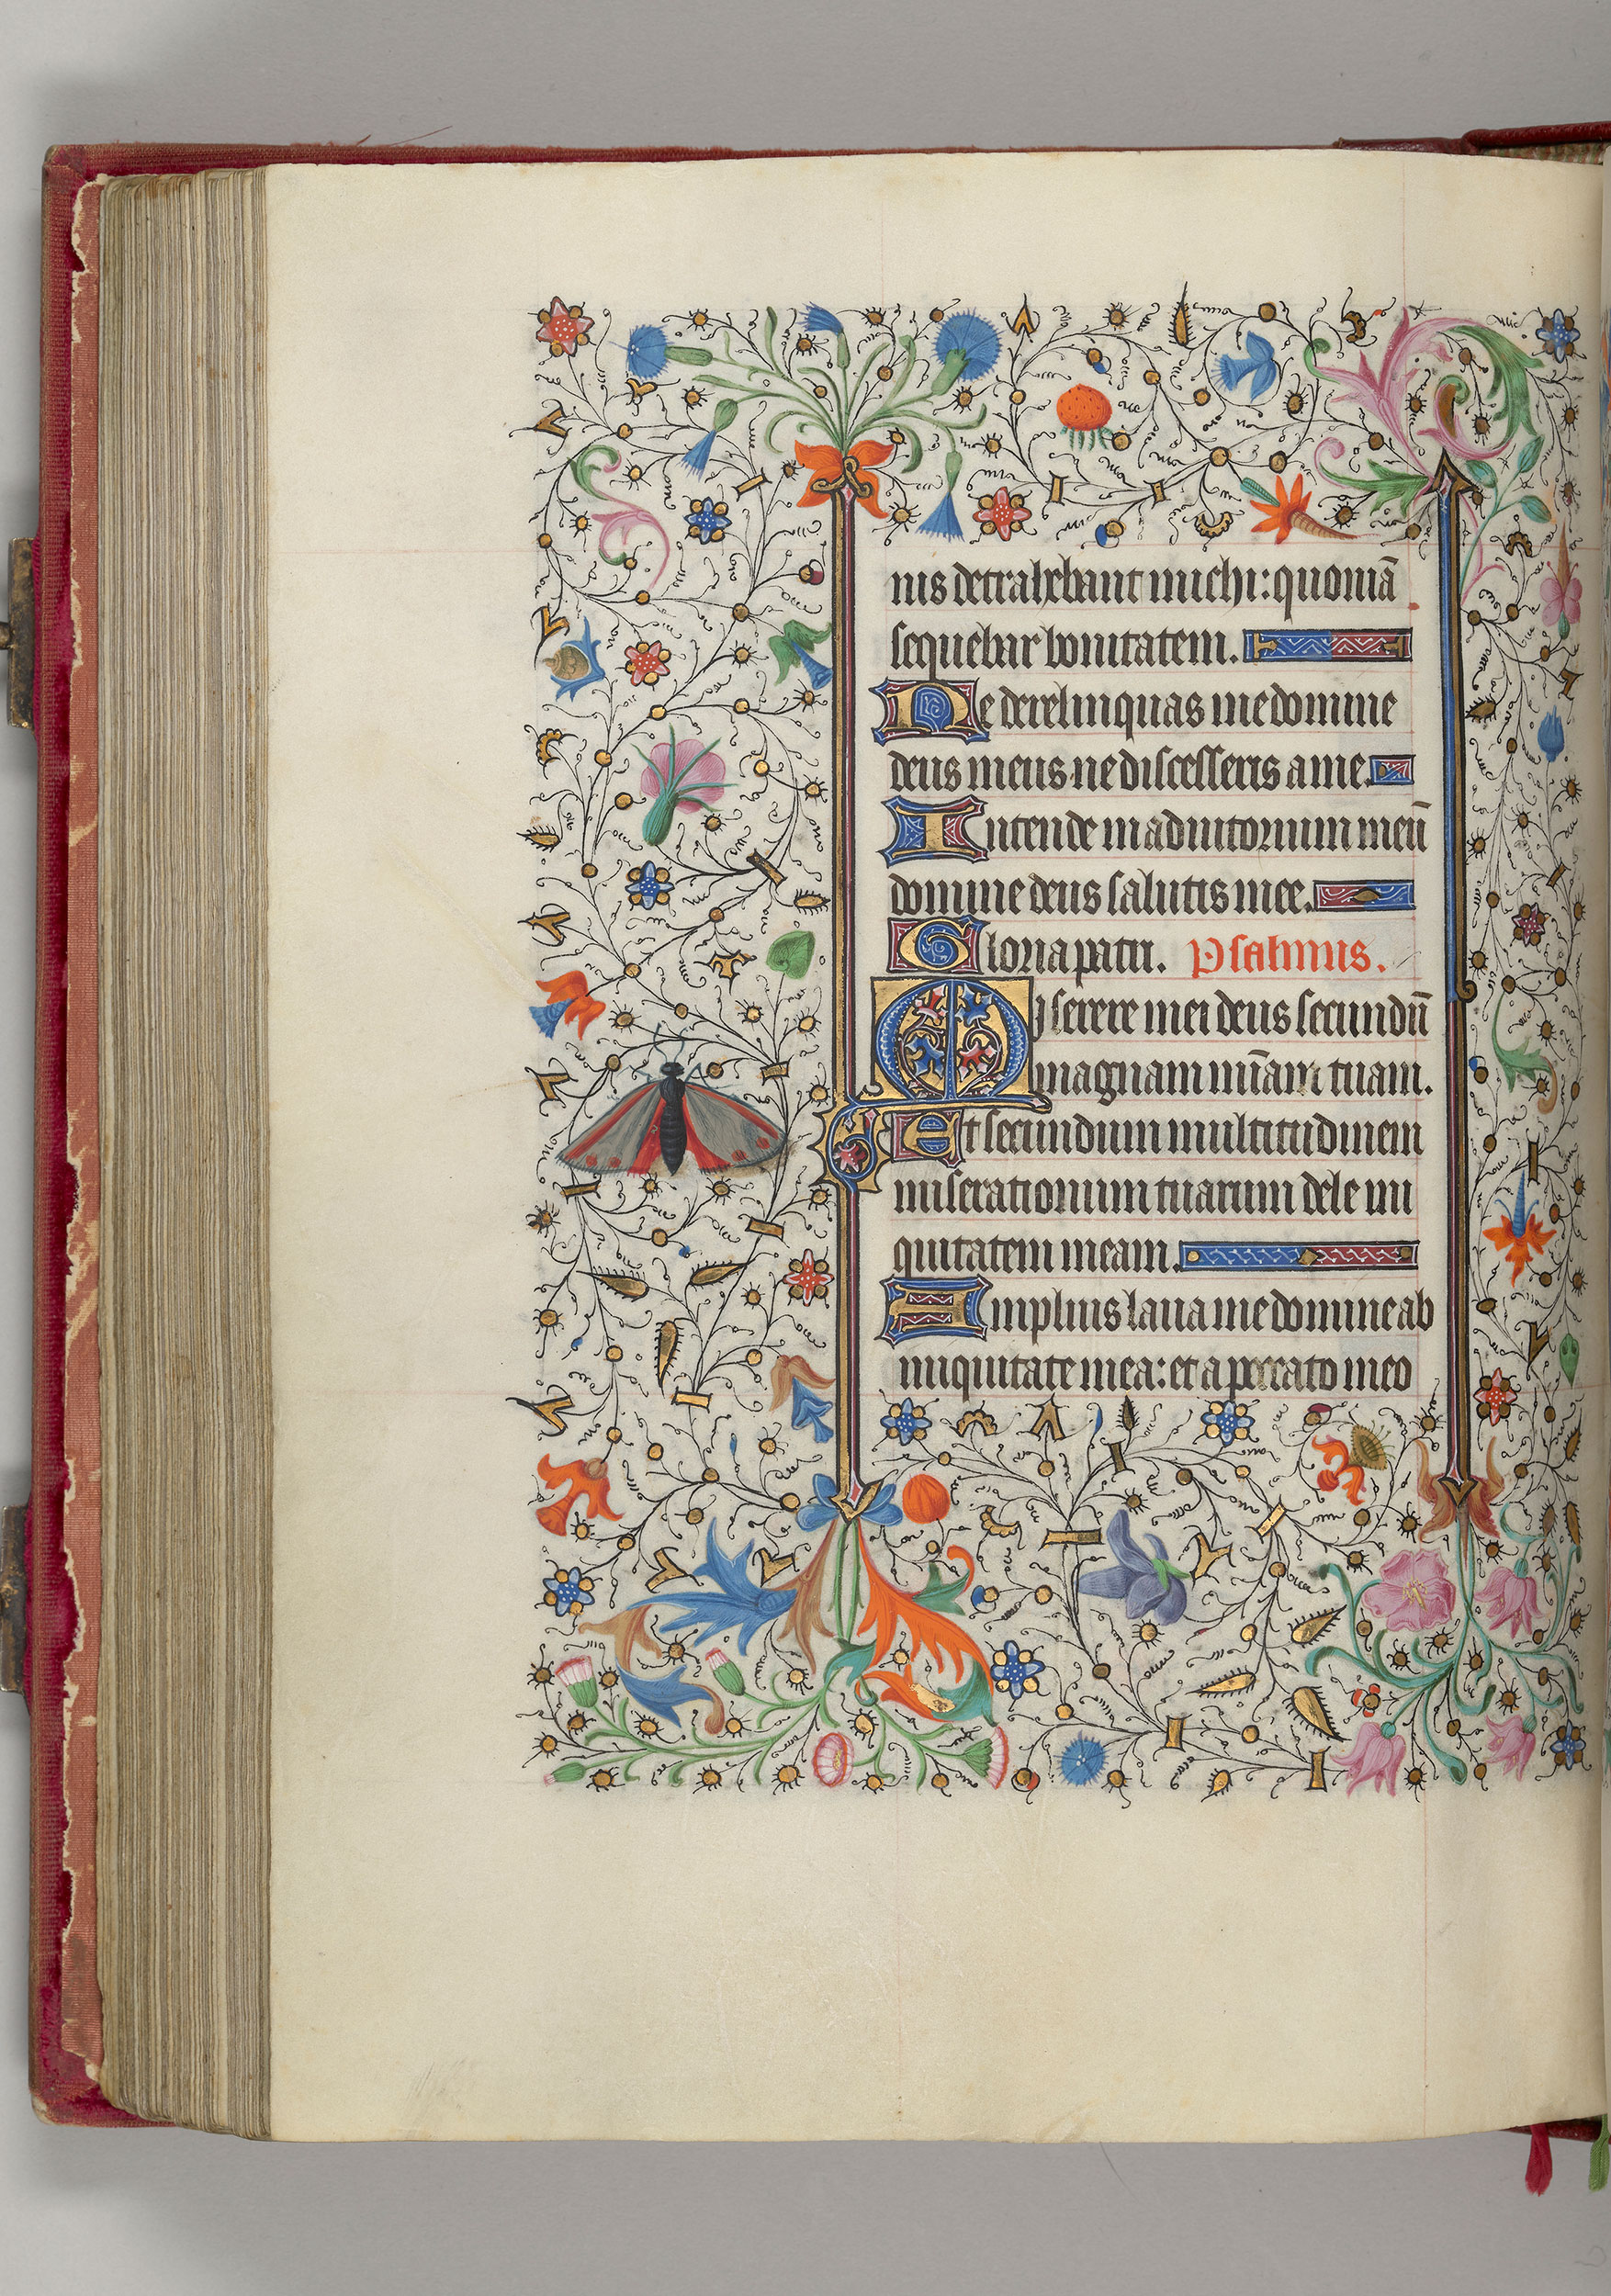 nis detrahebant michi: quoniā
sequebar bonitatem.
Ne derelinquas me domine
deus meus ne discesseris a me.
Intende in adiutorium meū
domine deus salutis mee.
Gloria patri. Psalmus.
Miserere mei deus secundū
magnam mīam tuam.
Et secundum multitudinem
miserationum tuarum dele ini
quitatem meam.
Amplius laua me domine ab
iniquitate mea: et a peccato meo